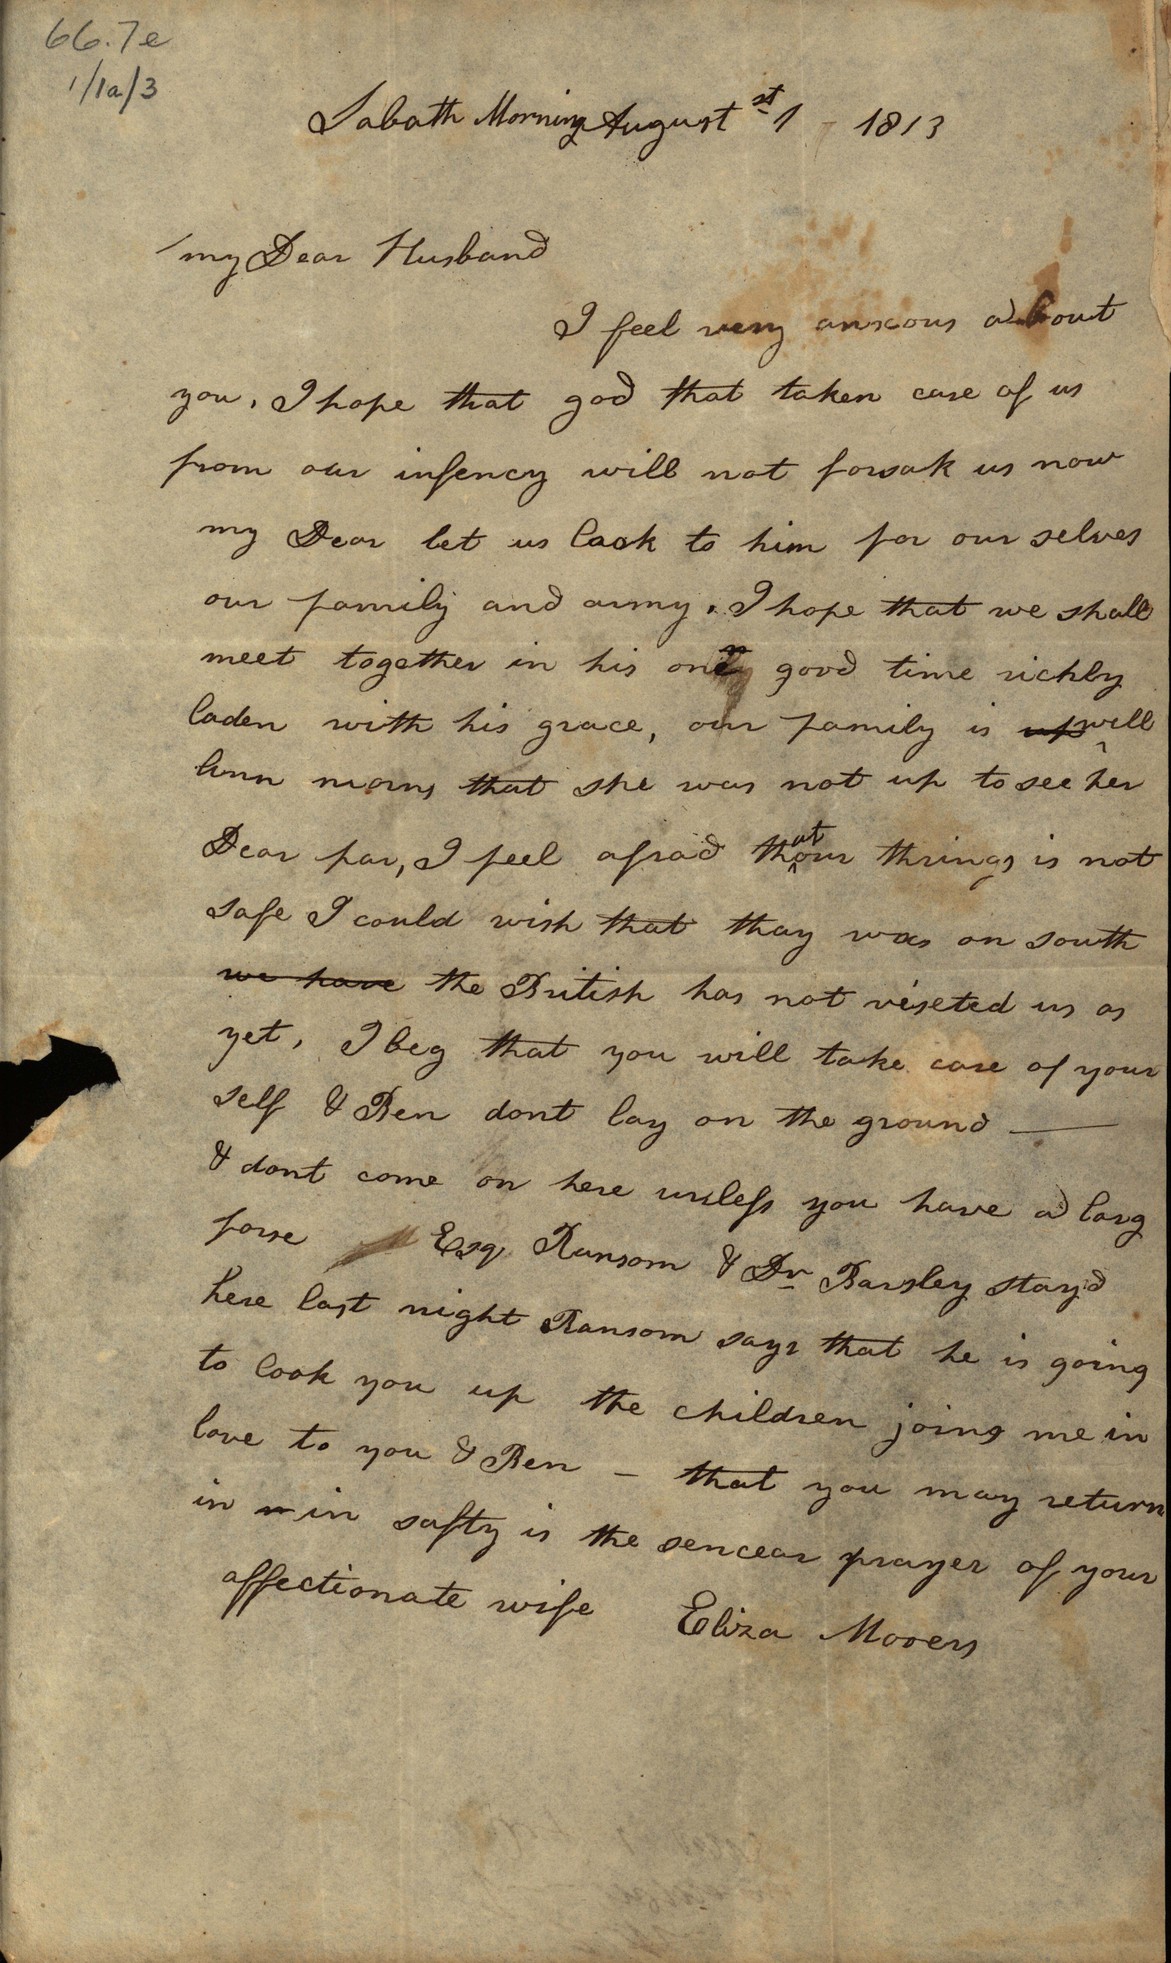 66.7e
1/1a/3
Sabath Morning August st 1 - 1813
my Dear Husband
I feel very anxcous about
you, I hope that god that taken care of us
from our infency will not forsak us now
my Dear let us look to him for our selves
our family and army, I hope that we shall
meet together in his own good time richly
laden with his grace, our family is up well
Ann morns that she was not up to see her
Dear par, I feel afrad that our things is not
safe I could wish that thay was on south
we have the British has not viseted us as
yet, I beg that you will take care of your
self & Ben dont lay on the ground —
& dont come on here unless you have a larg
forse Esq Ransom & Dr Barsley stayd
here last night Ransom says that he is going
to look you up the children joing me in
love to you & Ben – that you may return
in in safty is the sencear prayer of your
affectionate wife Eliza Mooers